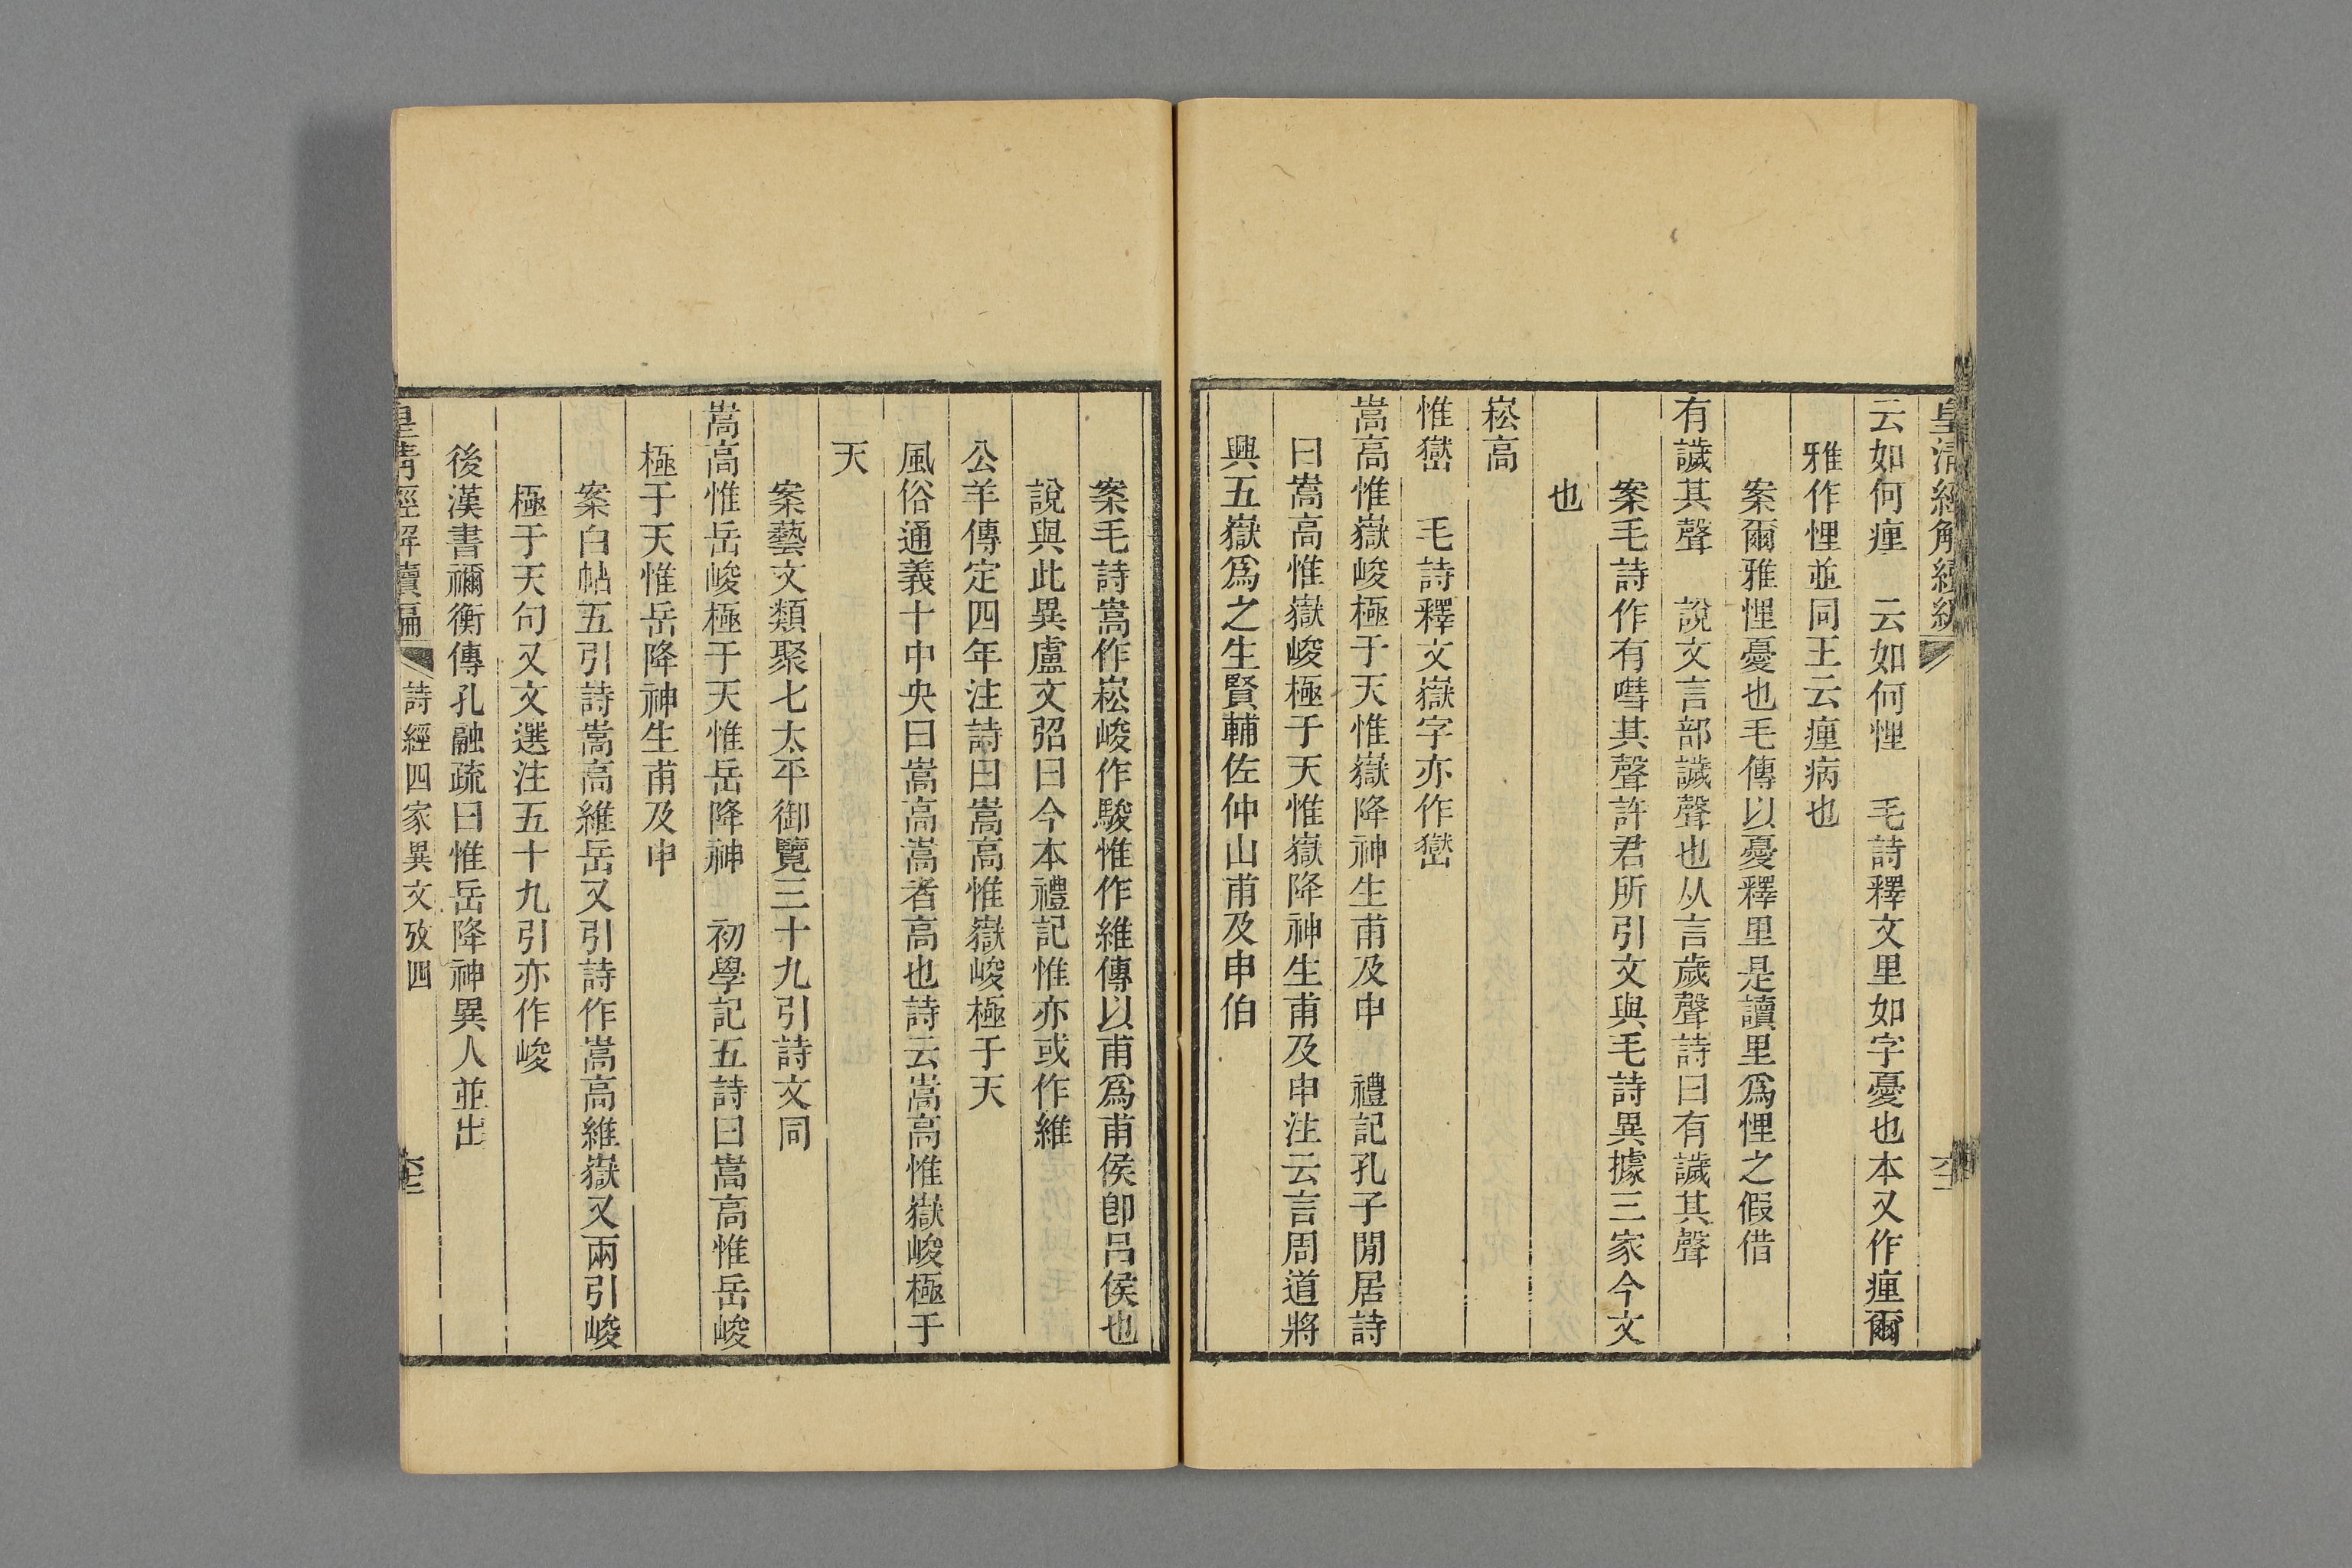 皇清經解續編
云如何㾖　云如何悝　毛詩釋文里如字憂也本又作㾖爾
雅作悝並同王云㾖病也
案爾雅悝憂也毛傳以憂釋里是讀里爲悝之假借
有譏其聲　說文言部譏聲也从言歲聲詩曰有譏其聲
案毛詩作有嘒其聲許君所引文與毛詩異據三家今文
也
崧高
惟㟧　毛詩釋文嶽字亦作㟧
嵩高惟嶽峻極于天惟嶽降神生甫及申　禮記孔子閒居詩
曰嵩高惟嶽峻極于天惟嶽降神生甫及申注云言周道將
興五嶽爲之生賢輔佐仲山甫及申伯
案毛詩嵩作崧峻作駿惟作維傳以甫爲甫侯卽呂侯也
說與此異盧文弨曰今本禮記惟亦或作維
公羊傳定四年注詩曰嵩高惟嶽峻極于天
風俗通義十中央曰嵩高嵩者高也詩云嵩高惟嶽峻極于
天
案藝文類聚七太平御覽三十九引詩文同
嵩高惟岳峻極于天惟岳降神　初學記五詩曰嵩高惟岳峻
極于天惟岳降神生甫及申
案白帖五引詩嵩高維岳又引詩作嵩高維嶽又兩引峻
極于天句又文選注五十九引亦作峻
後漢書禰衡傳孔融疏曰惟岳降神異人並出
皇清經解續編　詩經四家異文攷四